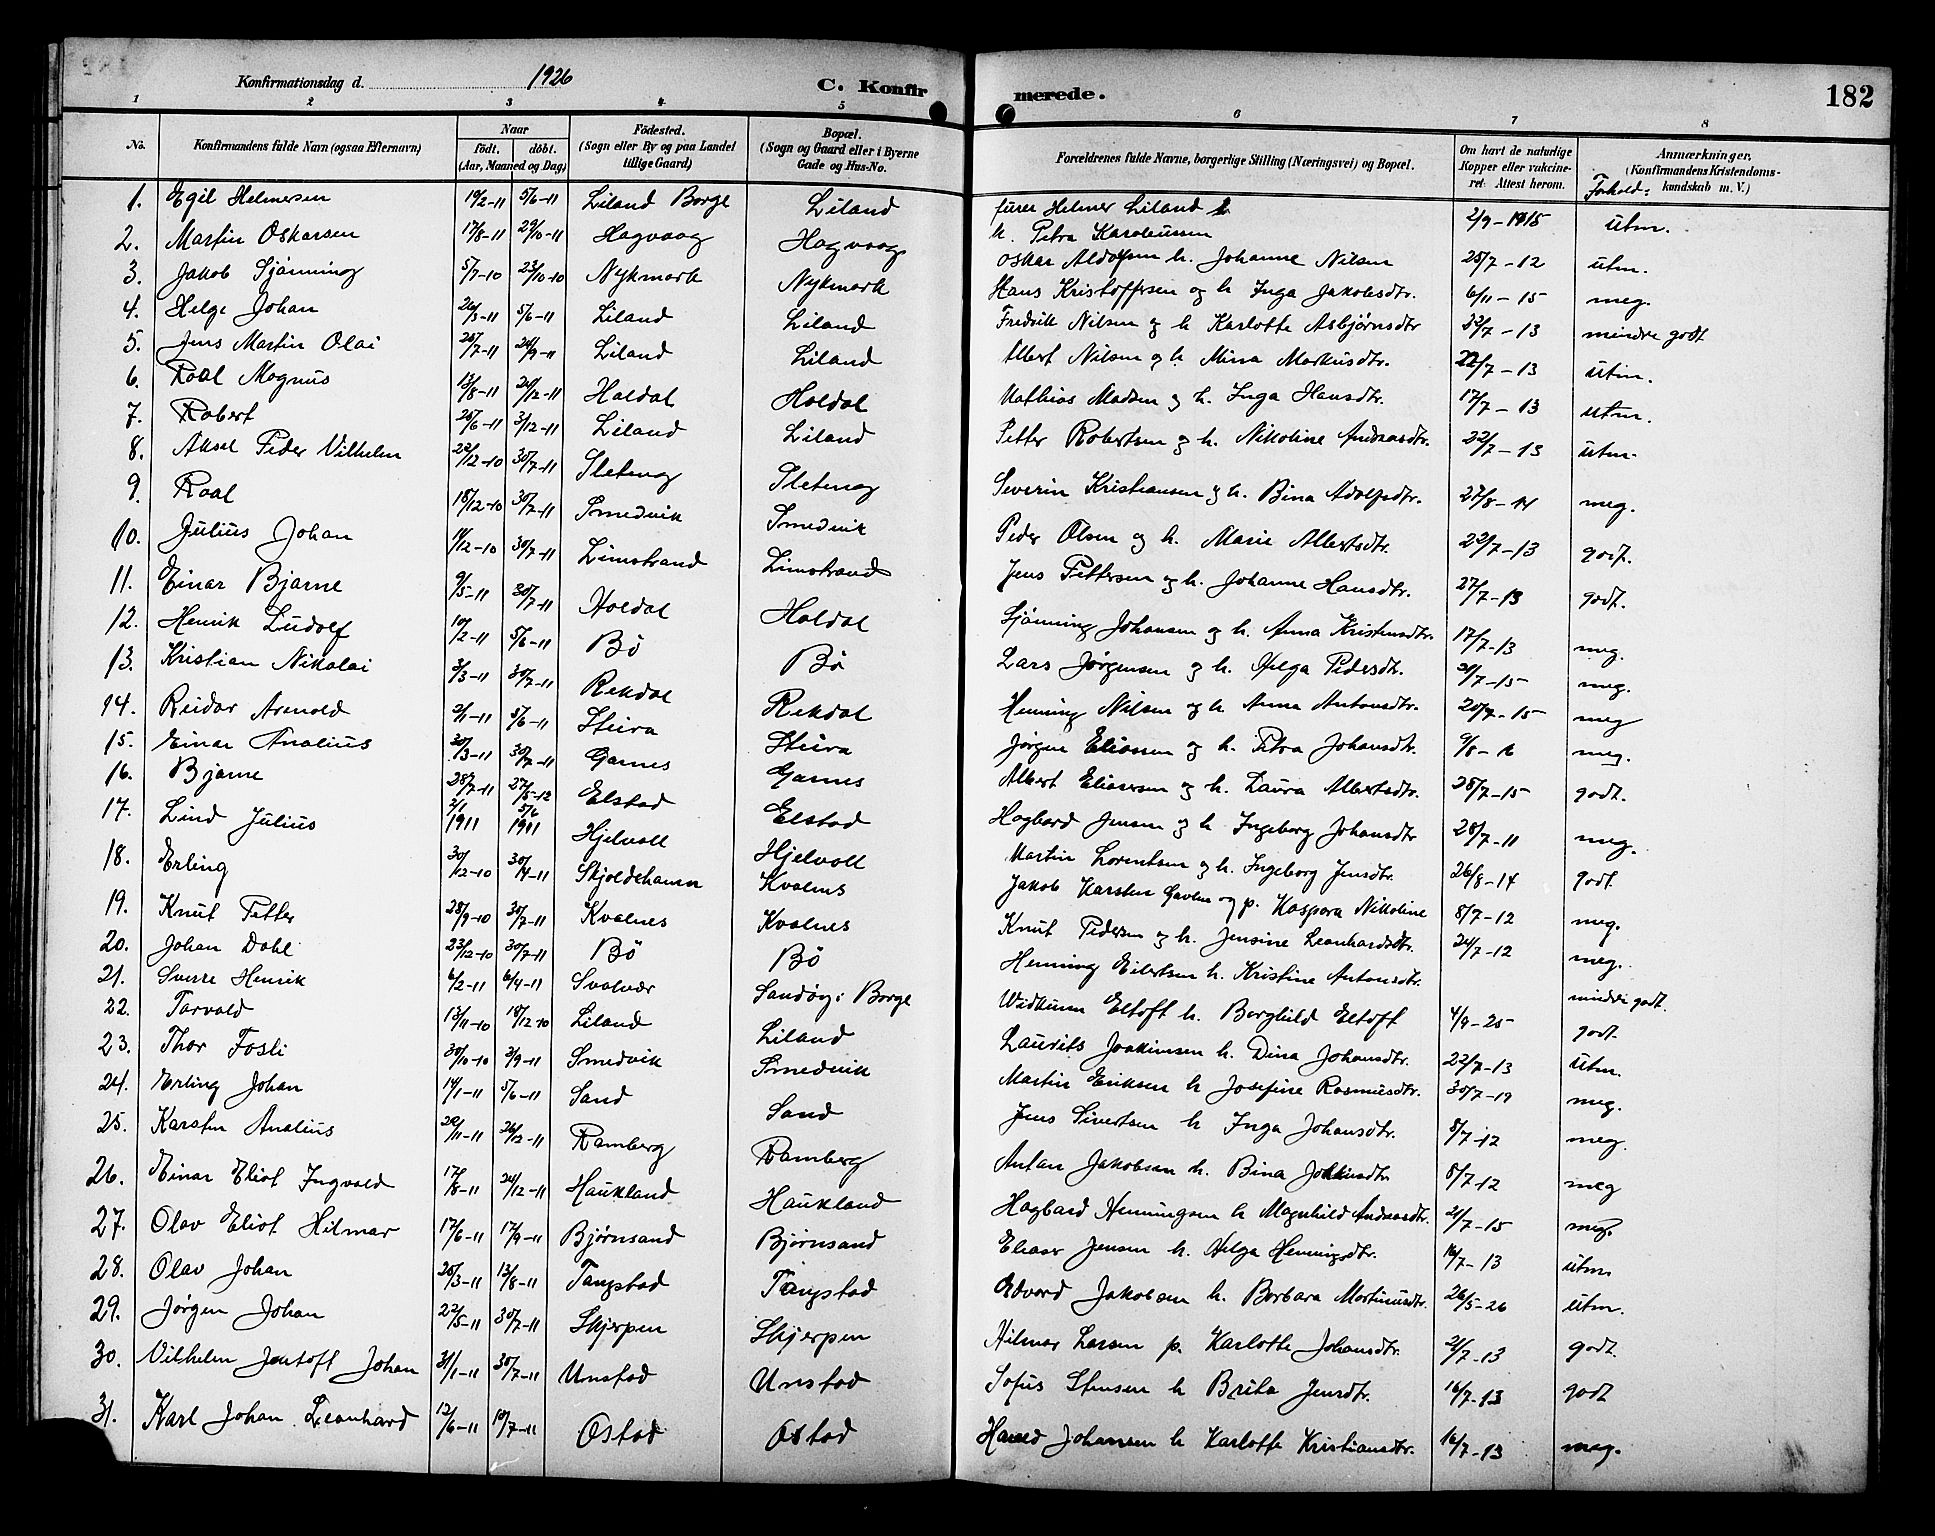 Konfirmationsdag d. 1926 C. Konfirmerede. 182
1 2 3 4 5 6 7 8
No. Konfirmandens fulde Navn (ogsaa Efternavn) Naar født. døbt. (Aar, Maaned og Dag) Födested. (Sogn eller By og paa Landet tillige Gaard) Bopæl. (Sogn og Gaard eller i Byerne Gade og Hus-No. Forældrenes fulde Navne, borgerlige Stilling (Næringsvei) og Bopæl. Om havt de naturlige Kopper eller vakcineret: Attest herom. Anmærkninger. (Konfirmandens Kristendomskundskab m. V.) Forhold:
1. Egil Helmersen 19/2-11 5/6-11 Liland Borge Liland Helmer Liland h. Petra 2/9-1915 utm.
2. Martin Oskarsen 17/8-11 29/10-11 Hagvaag Hagvaag Oskar Aldolfsen h. Johanne Nilsen 25/7-12 utm.
3. Jakob Sjønning 5/7-10 23/10-10 Nykmark Nykmark Hans Kristoffersen og h Inga Jakobsdtr. 6/11-15 meg.
4. Helge Johan 26/3-11 5/6-11 Liland Liland Fredrik Nilsen og h Karlotte Asbjørnsdtr 22/7-13 mindre godt
5. Jens Martin Olai 25/7-11 24/9-11 Liland Liland Albert Nilsen og h. Mina Markusdtr. 22/7-13 utm.
6. Roal Magnus 13/8-11 24/12-11 Holdal Holdal Mathias Madsen og h. Inga Hansdtr. 17/7-13 utm.
7. Robert 26/6-11 3/12-11 Liland Liland Petter Robertsen og h. Nikoline Andreasdtr. 22/7-13 utm.
8. Aksel Peder Vilhelm 22/12-10 30/7-11 Sleteng Sleteng Severin Kristiansen og h. Bina Adolfsdtr. 27/8-14 meg.
9. Roal 18/12-10 30/7-11 Smedvik Smedvik Peder Olsen og h. Marie Albertsdtr. 22/7-13 godt.
10. Julius Johan 14/12-10 30/7-11 Limstrand Limstrand Jens Pettersen og h. Johanne Hansdtr. 27/7-13 godt.
11. Einar Bjarne 9/5-11 30/7-11 Holdal Holdal Sjønning Johansen og h. Anna Kristensdtr. 17/7-13 meg.
12. Henrik Ludolf 10/2-11 5/6-11 Bø Bø Lars Jørgensen og h. Helga Pedersdtr. 21/7-15 meg.
13. Kristian Nikolai 3/3-11 30/7-11 Rekdal Rekdal Henning Nilsen og h Anna Antonsdtr. 20/7-15 meg
14. Reidar Arnold 2/1-11 5/6-11 Steira Steira Jørgen Eliassen og h. Petra Johansdtr. 9/8-16 meg.
15. Einar Analius 30/3-11 30/7-11 Garnes Garnes Albert Eliassen og h. Laura Albertsdtr. 28/7-15 godt.
16. Bjarne 28/7-11 27/5-12 Elstad Elstad Hagbard Jensen og h Ingeborg Johansdtr 28/7-11 meg.
17. Lind Julius 2/1 1911 5/6 1911 Hjelvoll Hjelvoll Martin Lorentsen og h. Ingeborg Jensdtr. 26/8-14 godt.
18. Erling 30/12-10 30/4-11 Skjoldehamn Kvalnes Jakob Karsten og p. Kaspara Nikoline 8/7-12 meg.
19. Knut Petter 28/9-10 30/7-11 Kvalnes Kvalnes Knut Pedersen og h. Jensine Leonhardsdtr. 24/7-12 meg.
20. Johan Dahl 23/12-10 30/7-11 Bø Bø Henning Eilertsen h. Kristine Antonsdtr. mindre godt.
21. Sverre Henrik 6/2-11 6/4-11 Svolvær Sandøy i Borge Eltoft h. Borghild Eltoft 4/9-25 godt.
22. Torvald 13/11-10 18/12-10 Liland Liland Laurits Joakimsen h. Dina Johansdtr. 22/7-13 utm.
23. Thor Fosli 30/10-10 3/9-11 Smedvik Smedvik Martin Eriksen h Josefine Rasmusdtr. 30/7-19 meg.
24. Erling Johan 14/1-11 5/6-11 Sand Sand Jens Sivertsen h Inga Johansdtr. 8/7-12 meg.
25. Karsten Analius 20/11-11 26/12-11 Ramberg Ramberg Antan Jakobsen h. Bina 8/7-12 meg
26. Einar Eliot Ingvald 17/8-11 24/12-11 Haukland Haukland Hagbard Henningsen h Magnhild Andreasdtr. 21/7-15 meg.
27. Olav Eliot Hilmar 17/6-11 17/9-11 Bjørnsand Bjørnsand Eliaser Jensen h. Helga Henningsdtr. 16/7-13 utm
28. Olav Johan 25/3-11 13/8-11 Tangstad Tangstad Edvard Jakobsen h. Borbara Martinusdtr. 26/5-26 utm.
29. Jørgen Johan 22/5-11 30/7-11 Skjerpen Skjerpen Hilmar Larsen p. Karlotte Johansdtr. 21/7-13 godt.
30. Vilhelm Jentoft Johan 31/1-11 30/7-11 Unstad Unstad Sofus Stensen h Brita Jensdtr. 16/7-13 godt
31. Karl Johan Leonhard 12/6-11 10/7-11 Ostad Ostad Johansen h Karlotte Kristiansdtr. 16/7-13 meg.